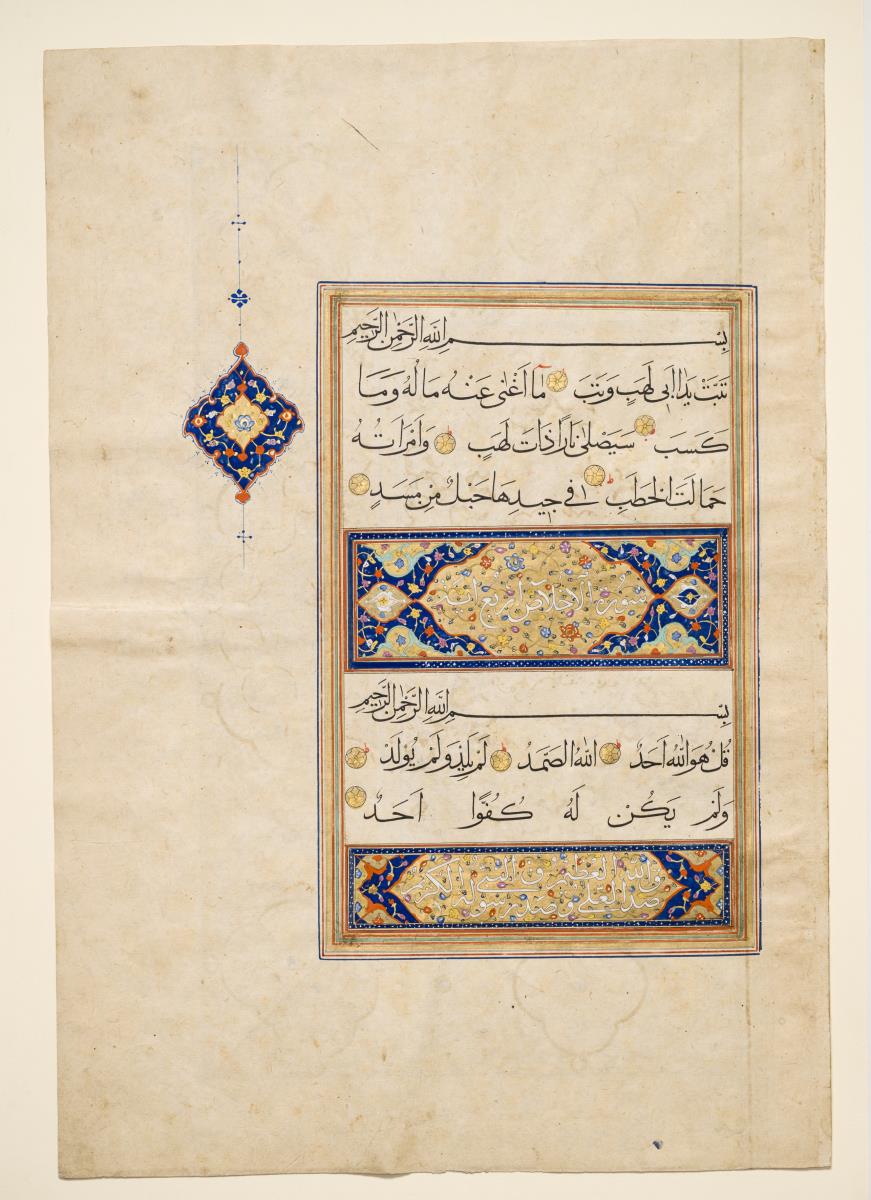 بِسْمِ اللَّهِ الرَّحْمٰنِ الرَّحِيمِ
تَبَّتْ يَدَا أَبِي لَهَبٍ وَتَبَّ مَا أَغْنَىٰ عَنْهُ مَالُهُ وَمَا
كَسَبَ سَيَصْلَىٰ نَارًا ذَاتَ لَهَبٍ وَامْرَأَتُهُ
حَمَّالَتَ الْحَطَبِ فِي جِيدِهَا حَبْلٌ مِنْ مَسَدٍ
سورة الاخلاص اربع ايات
بِسْمِ اللَّهِ الرَّحْمٰنِ الرَّحِيمِ
قُلْ هُوَ اللَّهُ أَحَدٌ اللَّهُ الصَّمَدُ لَمْ يَلِدْ وَلَمْ يُولَدْ
وَلَمْ يَكُنْ لَهُ كُفُوًا أَحَدٌ
صدق الله العلى العظيم وصدق رسوله النبى الكريم